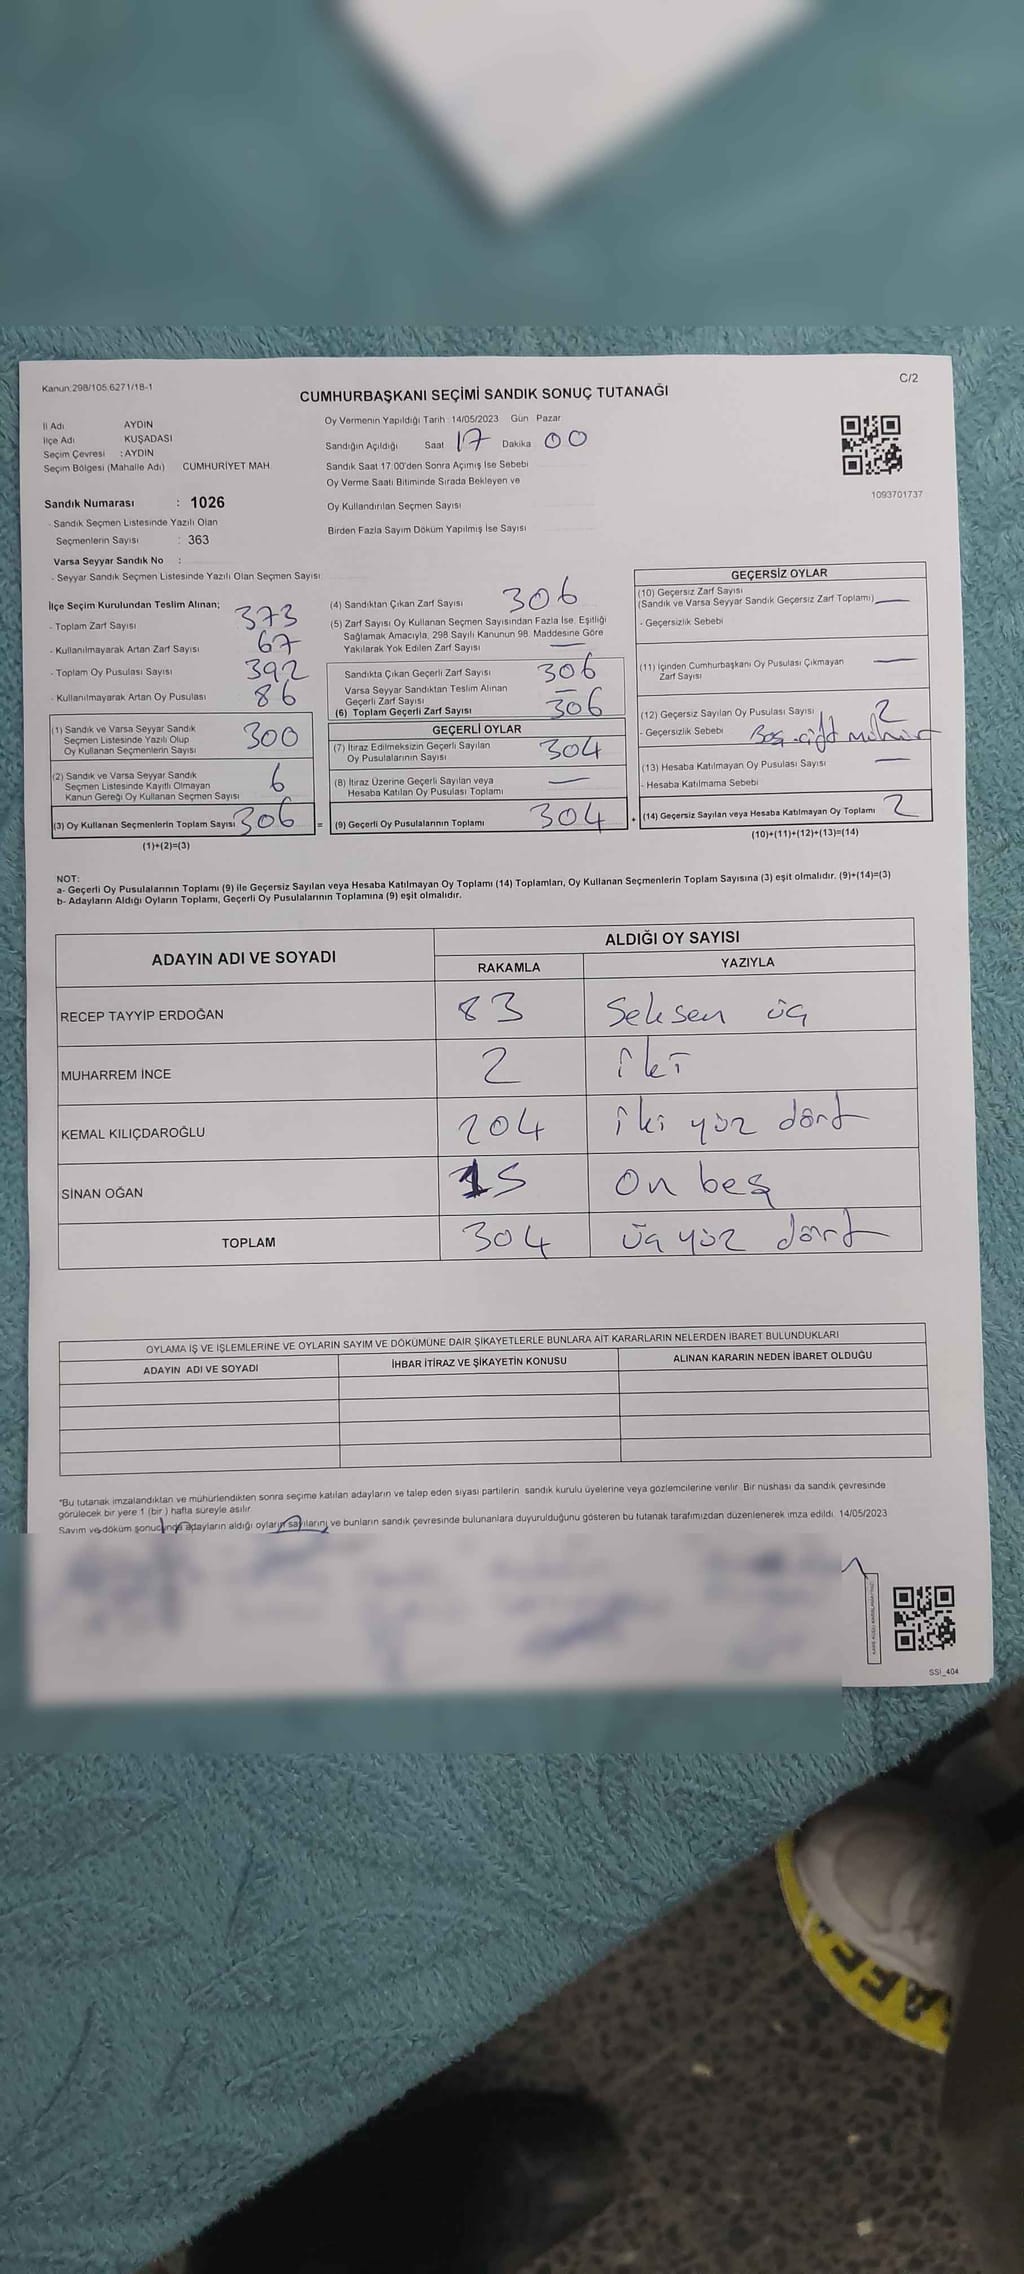 Kanun:298/105.6271/18-1
C/2
CUMHURBAŞKANI SEÇİMİ SANDIK SONUÇ TUTANAĞI
İl Adı AYDIN
İlçe Adı KUŞADASI
Seçim Çevresi : AYDIN
Seçim Bölgesi (Mahalle Adı) CUMHURİYET MAH.
Oy Vermenin Yapıldığı Tarih : 14/05/2023 Gün Pazar
Sandığın Açıldığı Saat 17 Dakika 00
Sandık Saat 17:00'den Sonra Açımış İse Sebebi
Oy Verme Saati Bitiminde Sırada Bekleyen ve
Oy Kullandırılan Seçmen Sayısı
Birden Fazla Sayım Döküm Yapılmış İse Sayısı
1093701737
Sandık Numarası : 1026
- Sandık Seçmen Listesinde Yazılı Olan
Seçmenlerin Sayısı : 363
Varsa Seyyar Sandık No :
- Seyyar Sandık Seçmen Listesinde Yazılı Olan Seçmen Sayısı:
İlçe Seçim Kurulundan Teslim Alınan;
- Toplam Zarf Sayısı 373
- Kullanılmayarak Artan Zarf Sayısı 67
- Toplam Oy Pusulası Sayısı 392
- Kullanılmayarak Artan Oy Pusulası 86
(1) Sandık ve Varsa Seyyar Sandık
Seçmen Listesinde Yazılı Olup
Oy Kullanan Seçmenlerin Sayısı 300
(2) Sandık ve Varsa Seyyar Sandık
Seçmen Listesinde Kayıtlı Olmayan
Kanun Gereği Oy Kullanan Seçmen Sayısı 6
(3) Oy Kullanan Seçmenlerin Toplam Sayısı 306 =
(1)+(2)=(3)
(4) Sandıktan Çıkan Zarf Sayısı 306
(5) Zarf Sayısı Oy Kullanan Seçmen Sayısından Fazla İse, Eşitliği
Sağlamak Amacıyla, 298 Sayılı Kanunun 98. Maddesine Göre
Yakılarak Yok Edilen Zarf Sayısı —
Sandıkta Çıkan Geçerli Zarf Sayısı 306
Varsa Seyyar Sandıktan Teslim Alınan
Geçerli Zarf Sayısı —
(6) Toplam Geçerli Zarf Sayısı 306
GEÇERLİ OYLAR
(7) İtiraz Edilmeksizin Geçerli Sayılan
Oy Pusulalarının Sayısı 304
(8) İtiraz Üzerine Geçerli Sayılan veya
Hesaba Katılan Oy Pusulası Toplamı —
(9) Geçerli Oy Pusulalarının Toplamı 304 +
GEÇERSİZ OYLAR
(10) Geçersiz Zarf Sayısı
(Sandık ve Varsa Seyyar Sandık Geçersiz Zarf Toplamı) —
- Geçersizlik Sebebi
(11) İçinden Cumhurbaşkanı Oy Pusulası Çıkmayan
Zarf Sayısı —
(12) Geçersiz Sayılan Oy Pusulası Sayısı 2
- Geçersizlik Sebebi Boş - çift mühür
(13) Hesaba Katılmayan Oy Pusulası Sayısı —
- Hesaba Katılmama Sebebi
(14) Geçersiz Sayılan veya Hesaba Katılmayan Oy Toplamı 2
(10)+(11)+(12)+(13)=(14)
NOT:
a- Geçerli Oy Pusulalarının Toplamı (9) ile Geçersiz Sayılan veya Hesaba Katılmayan Oy Toplamı (14) Toplamları, Oy Kullanan Seçmenlerin Toplam Sayısına (3) eşit olmalıdır. (9)+(14)=(3)
b- Adayların Aldığı Oyların Toplamı, Geçerli Oy Pusulalarının Toplamına (9) eşit olmalıdır.
ADAYIN ADI VE SOYADI ALDIĞI OY SAYISI
RAKAMLA YAZIYLA
RECEP TAYYİP ERDOĞAN 83 Seksen üç
MUHARREM İNCE 2 iki
KEMAL KILIÇDAROĞLU 204 iki yüz dört
SİNAN OĞAN 15 On beş
TOPLAM 304 üç yüz dört
OYLAMA İŞ VE İŞLEMLERİNE VE OYLARIN SAYIM VE DÖKÜMÜNE DAİR ŞİKAYETLERLE BUNLARA AİT KARARLARIN NELERDEN İBARET BULUNDUKLARI
ADAYIN ADI VE SOYADI İHBAR İTİRAZ VE ŞİKAYETİN KONUSU ALINAN KARARIN NEDEN İBARET OLDUĞU
*Bu tutanak imzalandıktan ve mühürlendikten sonra seçime katılan adayların ve talep eden siyasi partilerin sandık kurulu üyelerine veya gözlemcilerine verilir. Bir nüshası da sandık çevresinde
görülecek bir yere 1 (bir ) hafta süreyle asılır.
Sayım ve döküm sonucunda adayların aldığı oyların sayılarını ve bunların sandık çevresinde bulunanlara duyurulduğunu gösteren bu tutanak tarafımızdan düzenlenerek imza edildi. 14/05/2023
SSI_404